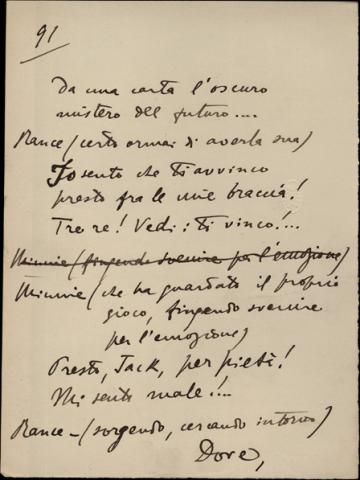 91
Da una carta l'oscuro
mistero del futuro....
Rance (certo ormai di averla sua)
Io sento che ti avvinco
presto fra le mie braccia!
Tre re! Vedi: ti vinco!...
Minnie (fingendo svenire per l'emozione)
Minnie (che ha guardato il proprio
gioco, fingendo svenire
per l'emozione)
Presto, Jack, per pietà!
Mi sento male!...
Rance - (sorgendo, cercando intorno)
Dove,